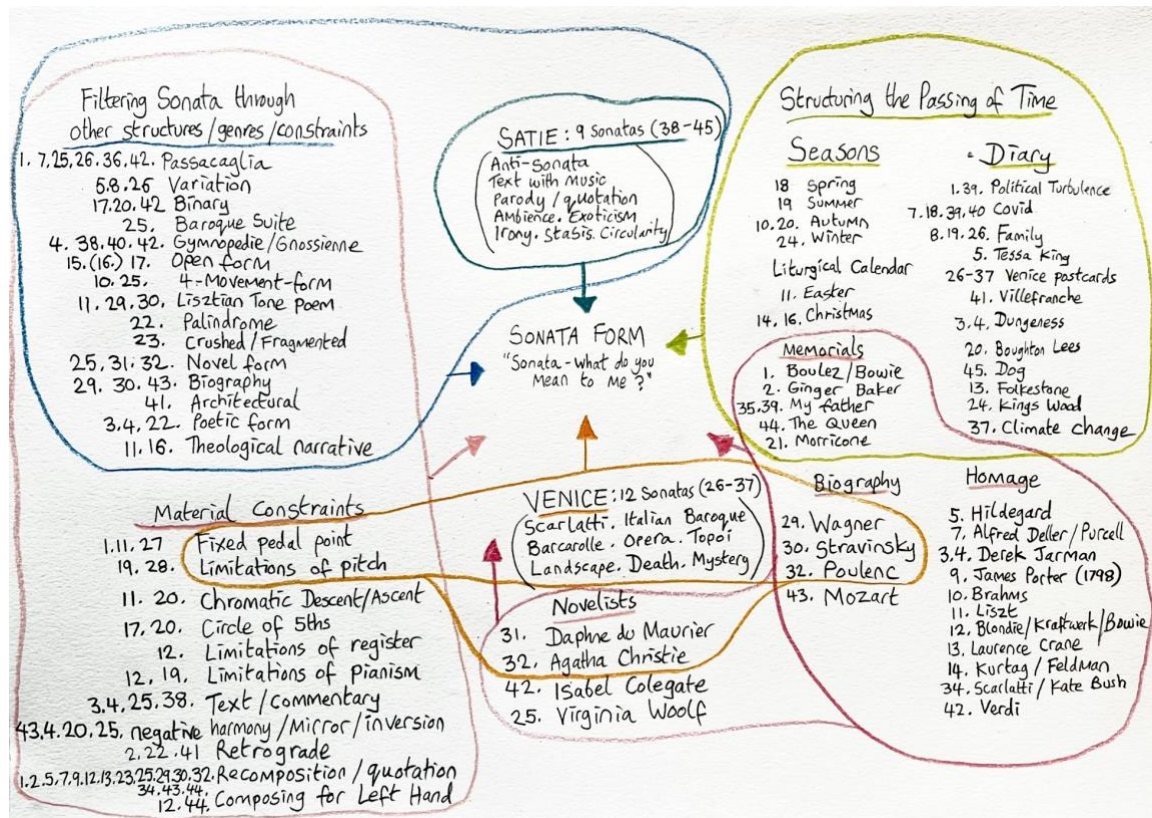 Filtering Sonata through
other structures/genres/constraints
1. 7,25,26.36.42. Passacaglia
5.8.26 Variation
17.20.42 Binary
25. Baroque Suite
4. 38.40.42. Gymnopedie/Gnossienne
15.(16.) 17. Open form
10.25. 4-Movement-form
11.29.30. Lisztian Tone poem
22. Palindrome
23. Crushed/Fragmented
25,31.32. Novel form
29. 30. 43. Biography
41. Architectural
3,4.22. Poetic form
11.16. Theological narrative
Material Constraints
1.11.27 Fixed pedal point
19.28. Limitations of pitch
11. 20. Chromatic Descent/Ascent
17.20. Circle of 5ths
12. Limitations of register
12, 19. Limitations of Pianism
3.4.25.38. Text/commentary
43,4.20,25. negative harmony/Mirror/inversion
2,22.41 Retrograde
1.2.5,7,9.12,13,23,25.29,30.32. Recomposition/quotation
34.43.44.
12.44. Composing for Left Hand
SATIE: 9 Sonatas (38-45)
Anti-Sonata
Text with Music
Parody/quotation
Ambience. Exoticism
Irony. Stasis. Circularity
SONATA FORM
"Sonata-what do you
Mean to Me?"
VENICE: 12 Sonatas (26-37)
Scarlatti. Italian Baroque
Barcarolle. Opera. Topoi
Landscape. Death. Mystery
Novelists
31. Daphne du Maurier
32. Agatha Christie
42. Isabel Colegate
25. Virginia Woolf
Structuring the Passing of Time
Seasons
18 Spring
19 Summer
10.20. Autumn
24. Winter
Liturgical Calendar
11. Easter
14, 16. Christmas
Memorials
1. Boulez/Bowie
2. Ginger Baker
35.39. My father
44. The Queen
21. Morricone
Diary
1.39. Political Turbulence
7.18.39,40 Covid
8.19.26. Family
5. Tessa King
26-37 Venice postcards
41. Villefranche
3.4. Dungeness
20. Boughton Lees
45. Dog
13. Folkestone
24. Kings Wood
37. Climate change
Biography
29. Wagner
30. Stravinsky
32. Poulenc
43. Mozart
Homage
5. Hildegard
7, Alfred Deller/Purcell
3,4. Derek Jarman
9, James Porter (1798)
10. Brahms
11. Liszt
12, Blondie/Kraftwerk/Bowie
13. Laurence Crane
14. Kurtag/Feldman
34. Scarlatti/Kate Bush
42. Verdi